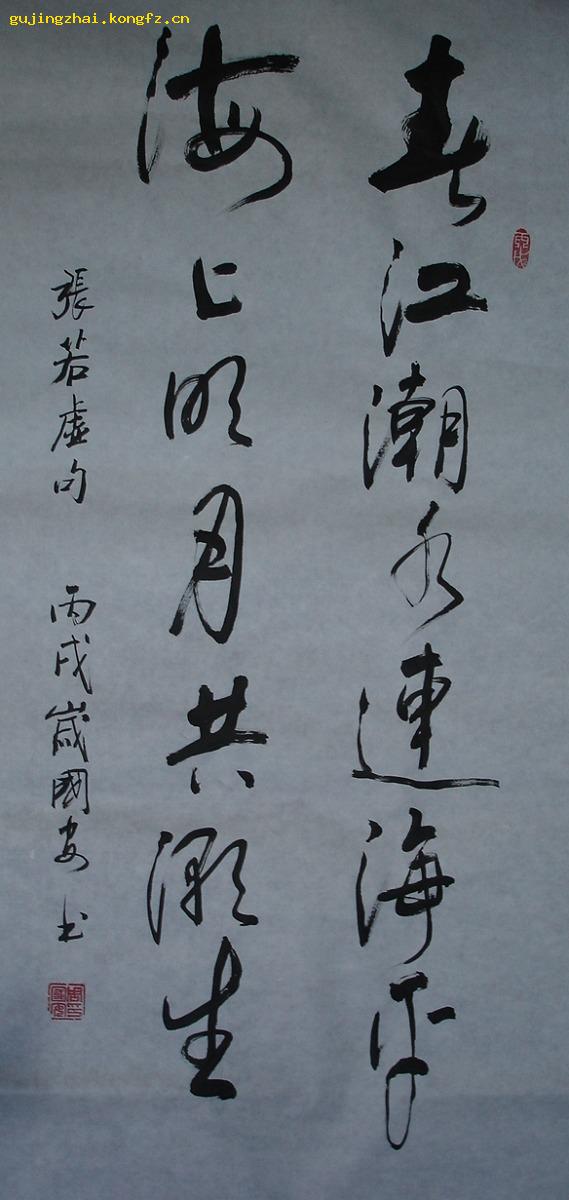 gujingzhai.kongfz.cn
春江潮水連海平
海上明月共潮生
張若虛句 丙戌歲國安书